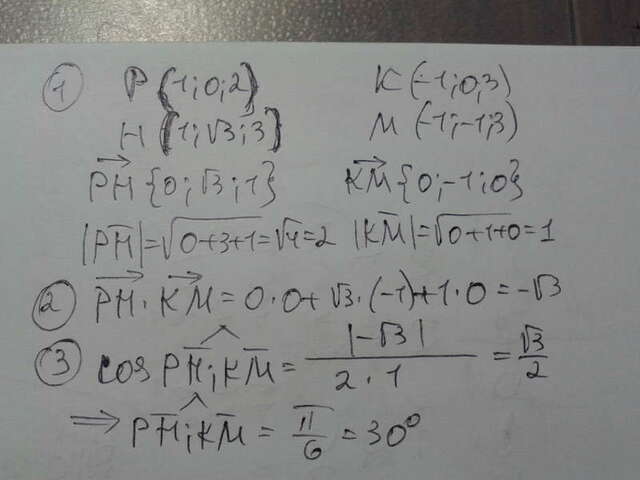 ① P (1;0;2) K (-1;0;3)
H (1;√3;3) M (-1;-1;3)
PH {0;√3;1} KM {0;-1;0}
|PH|=√0+3+1=√4=2 |KM|=√0+1+0=1
② PH · KM = 0·0+√3·(-1)+1·0=-√3
③ cos PH;KM = |-√3| / 2·1 = √3/2
⇒ PH;KM = π/6 = 30°